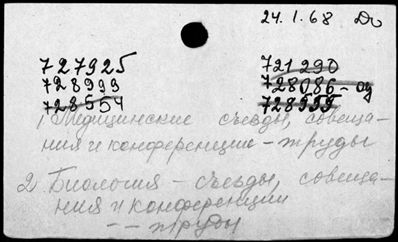 24.1.68 До
727925 721290
728999 728086-од
728554 728555
1) Медицинские съезды, совеща-
ния и конференции - труды
2) Биология - съезды, совеща-
ния и конференции
-- труды